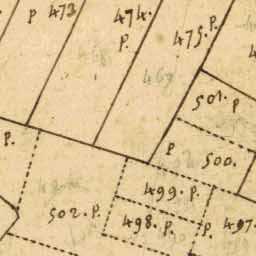 P 473
474.
P.
475. P.
501. P
P.
P
500.
499. P.
502. P.
498. P.
P. 497.